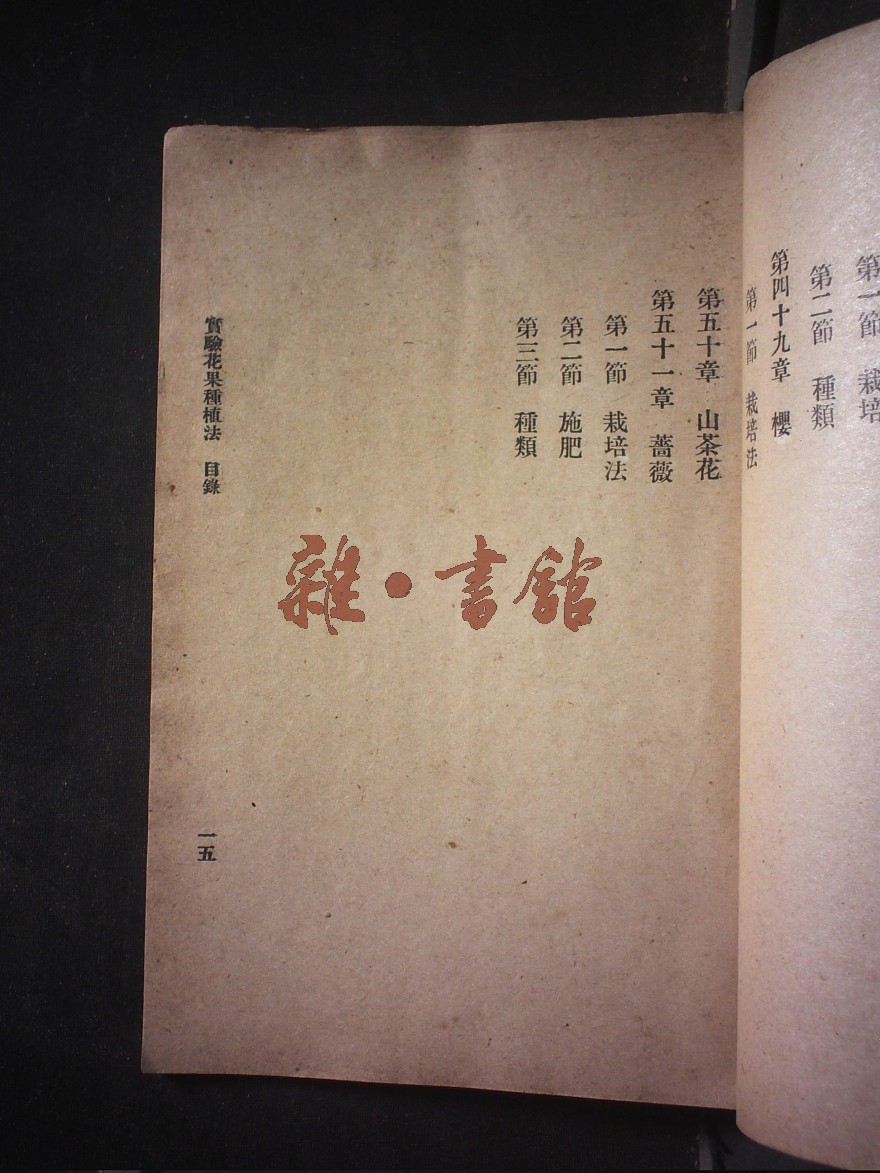 第一節　栽培
第二節　種類
第四十九章　櫻
第一節　栽培法
第五十章　山茶花
第五十一章　薔薇
第一節　栽培法
第二節　施肥
第三節　種類
實驗花果種植法　目錄
一五
雜・書館